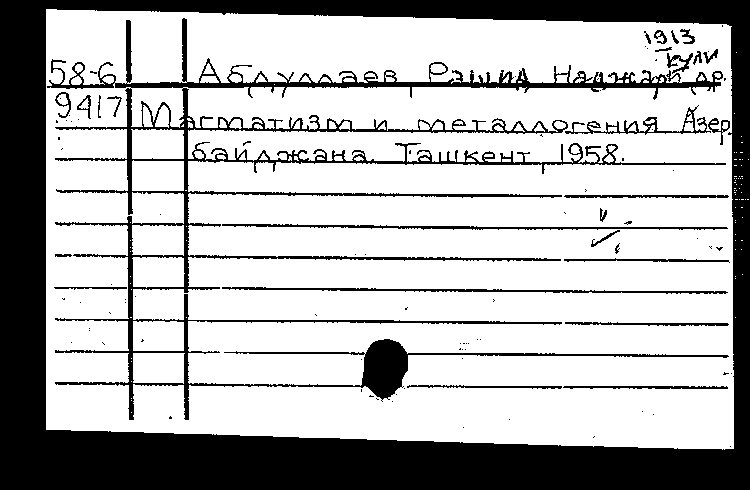 1913
кули
58-6 Абдуллаев, Рашид Наджаф др.
9417 Магматизм и металлогения Азер
байджана. Ташкент, 1958.